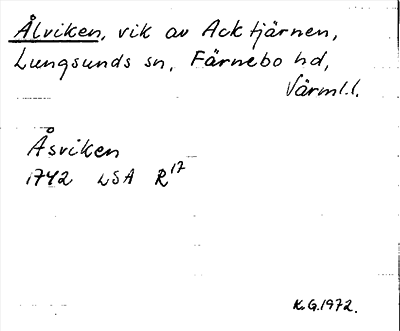 Ålviken, vik av Acktjärnen,
Lungsunds sn, Färnebo hd,
Värml.l.
Åsviken
1742 LSA R17
K.G.1972.